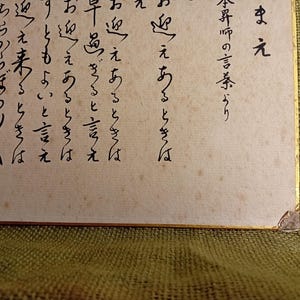 まえ
本昇師の言葉より
お迎えあるときは
え
お迎えあるときは
早過ぎると言え
お迎えあるときは
ずともよいと言え
迎え来るときは